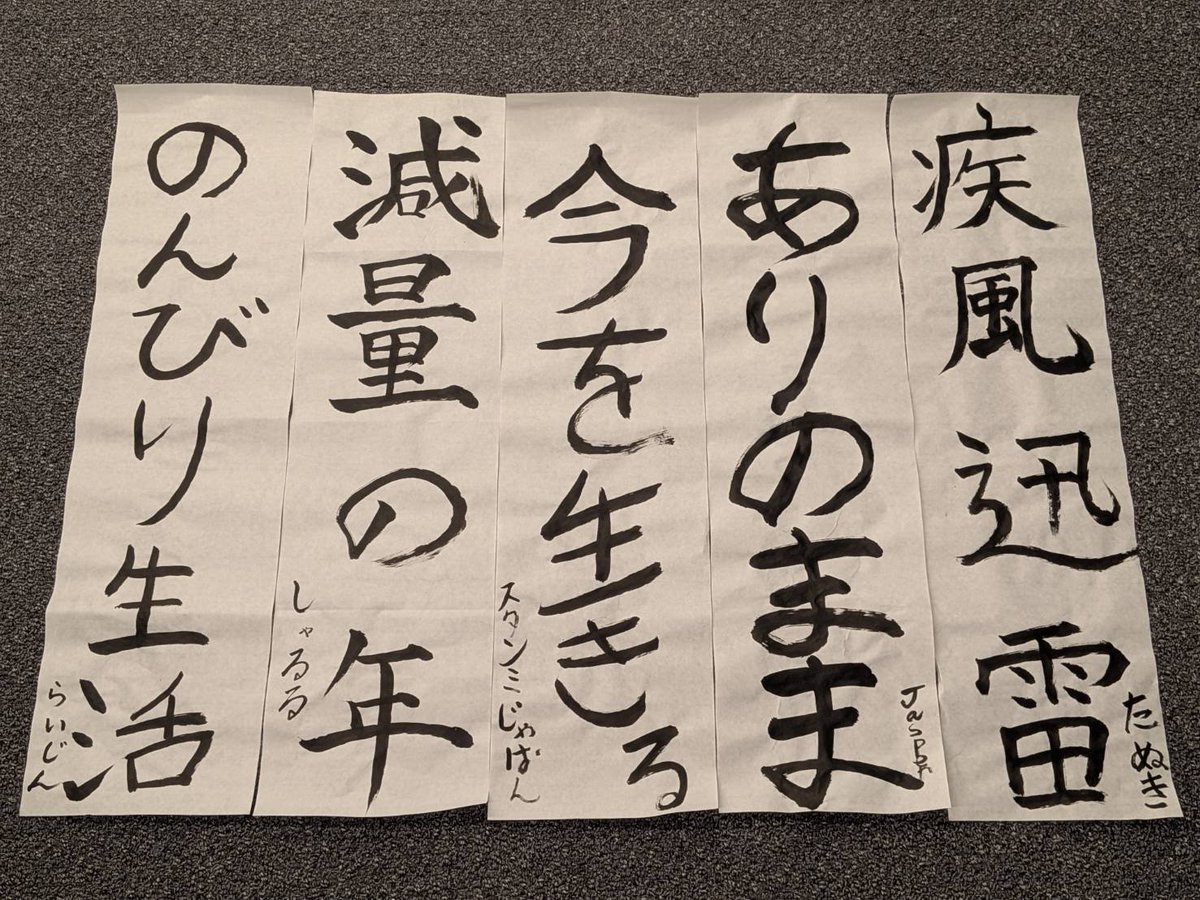 疾風迅雷
たぬき
ありのまま
Jasper
今を生きる
スタンミじゃぱん
減量の年
しゃるる
のんびり生活
らいじん